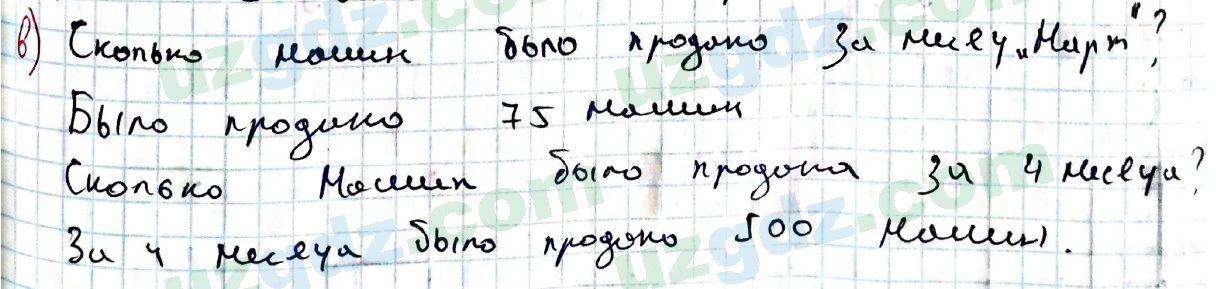 в) Сколько машин было продано за месяц „Март"?
Было продано 75 машин
Сколько машин было продона за 4 месяца?
За 4 месяца было продано 500 машины.